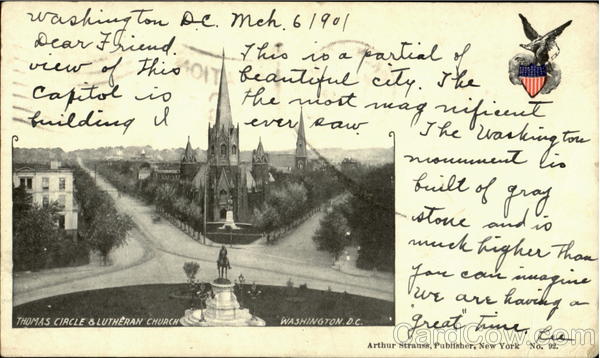 Washington D.C. Mch. 6/1901
Dear Friend.
This is a partial of
view of this
beautiful city. The
Capitol is
the most magnificent
building I
ever saw.
The Washington
monument is
built of gray
stone and is
much higher than
you can imagine
We are having a
"great" time.
THOMAS CIRCLE & LUTHERAN CHURCH
WASHINGTON. D.C.
Arthur Strauss, Publisher, New York No. 92.
CardCow.com